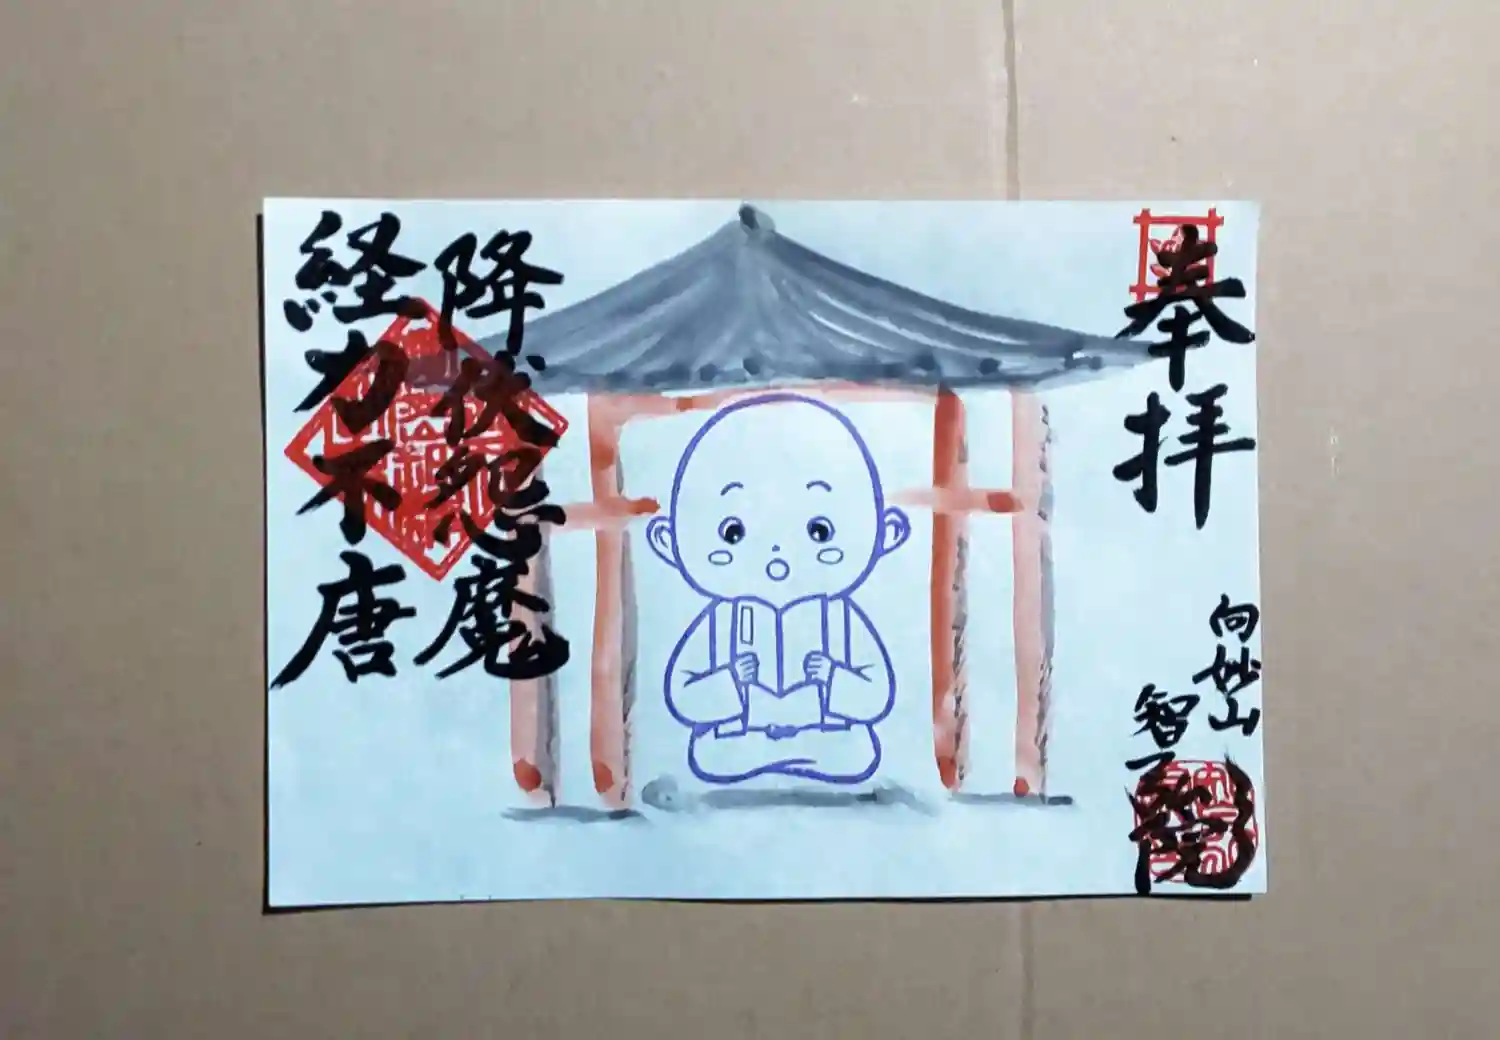 奉拝
向妙山
智弘院
降伏怨魔
経力不唐